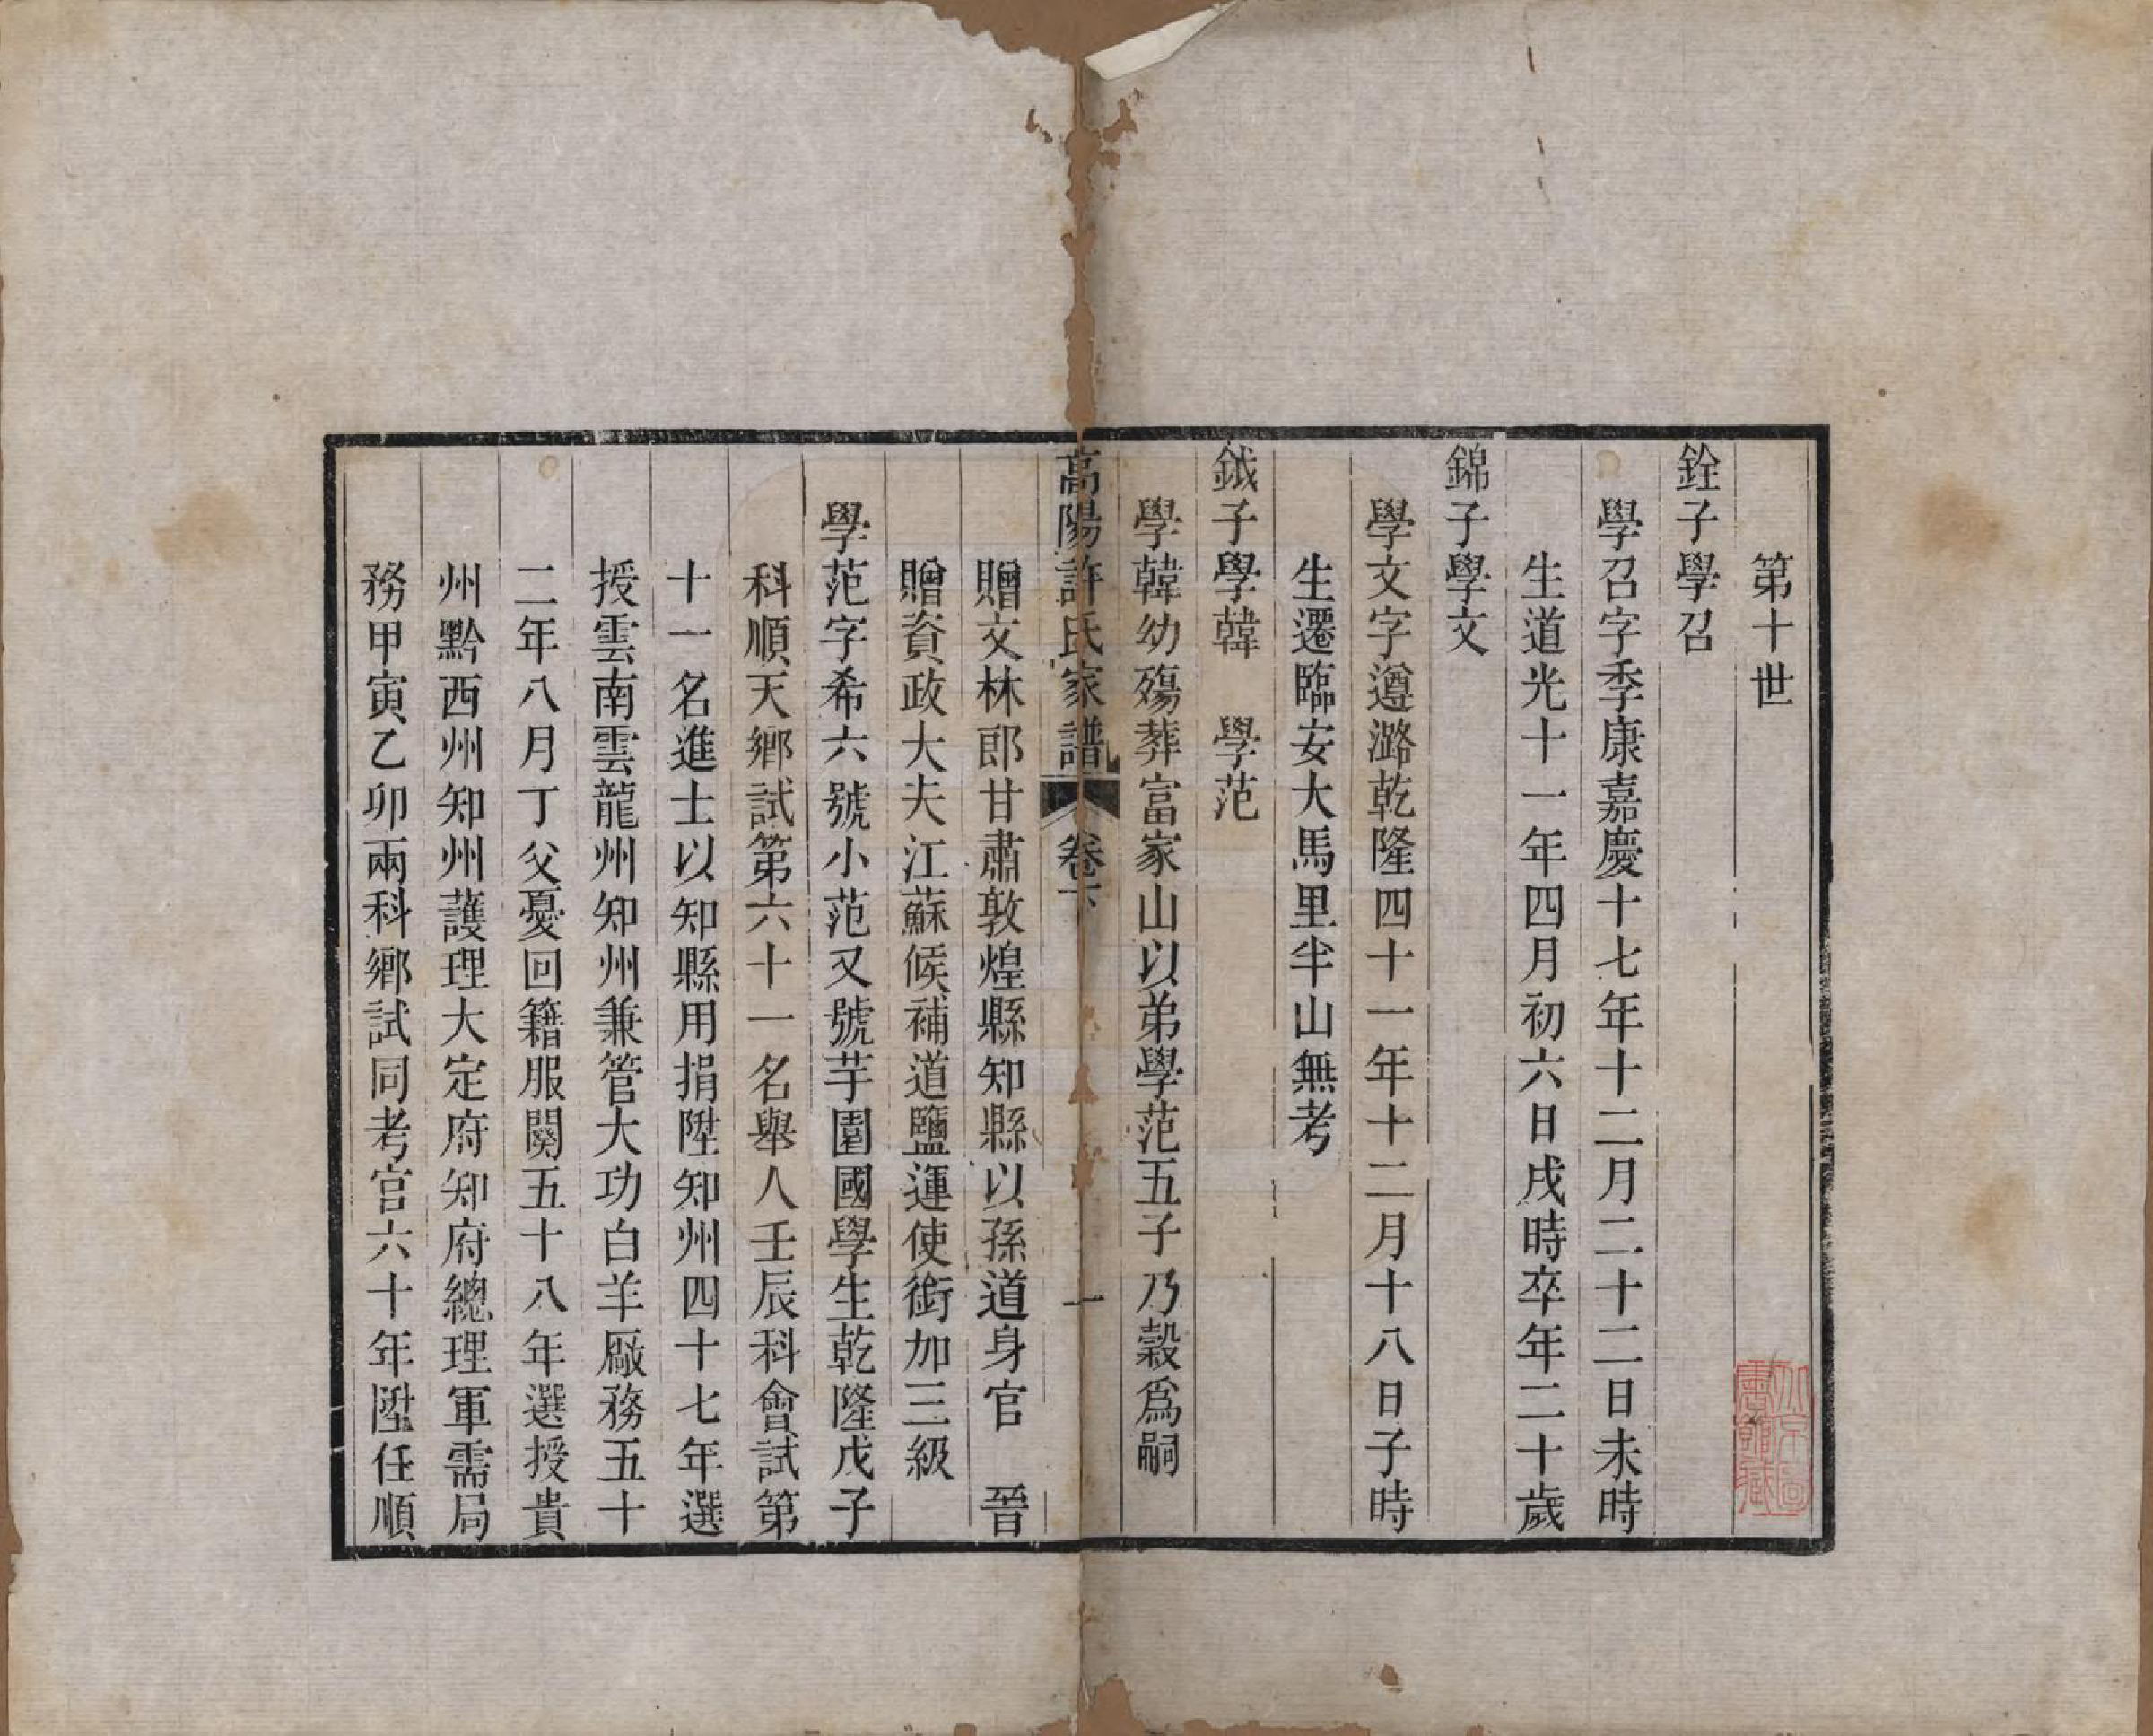 第十世
銓子學召
學召字季康嘉慶十七年十二月二十二日未時
生道光十一年四月初六日戌時卒年二十歲
錦子學文
學文字遵潞乾隆四十一年十二月十八日子時
生遷臨安大馬里半山無考
鉞子學韓　學范
學韓幼殤葬富家山以弟學范五子乃穀爲嗣
高陽許氏家譜　卷下　一
贈文林郎甘肅敦煌縣知縣以孫道身官　晉
贈資政大夫江蘇候補道鹽運使銜加三級
學范字希六號小范又號芋園國學生乾隆戊子
科順天鄉試第六十一名舉人壬辰科會試第
十一名進士以知縣用捐陞知州四十七年選
授雲南雲龍州知州兼管大功白羊厰務五十
二年八月丁父憂回籍服闋五十八年選授貴
州黔西州知州護理大定府知府總理軍需局
務甲寅乙卯兩科鄉試同考官六十年陞任順